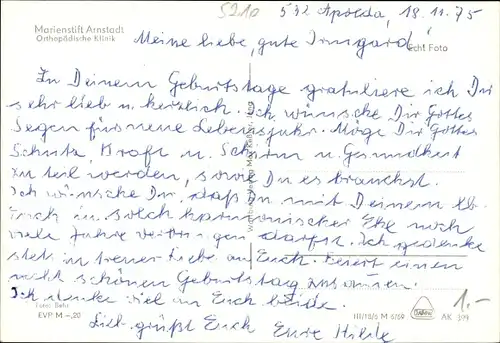 5210
532 Apolda, 18.11.75
Marienstift Arnstadt
Orthopädische Klinik
Meine liebe, gute Irmgard!
Echt Foto
Zu Deinem Geburtstage gratuliere ich Dir
sehr lieb u. herzlich. Ich wünsche Dir Gottes
Segen fürs neue Lebensjahr. Möge Dir Gottes
Schutz, Kraft u. Schirm u. Gesundheit
zu teil werden, soviel Du es brauchst.
Ich wünsche Dir, daß Du mit Deinem lb.
Erich in solch harmonischer Ehe noch
viele Jahre verbringen darfst. Ich gedenke
stets in treuer Liebe an Euch. Feiert einen
recht schönen Geburtstag zusammen.
Ich denke viel an Euch beide.
Lieb grüßt Euch Eure Hilde
Foto: Behr
EVP M -,20
III/18/5 M 6/69
AK 399
1.-